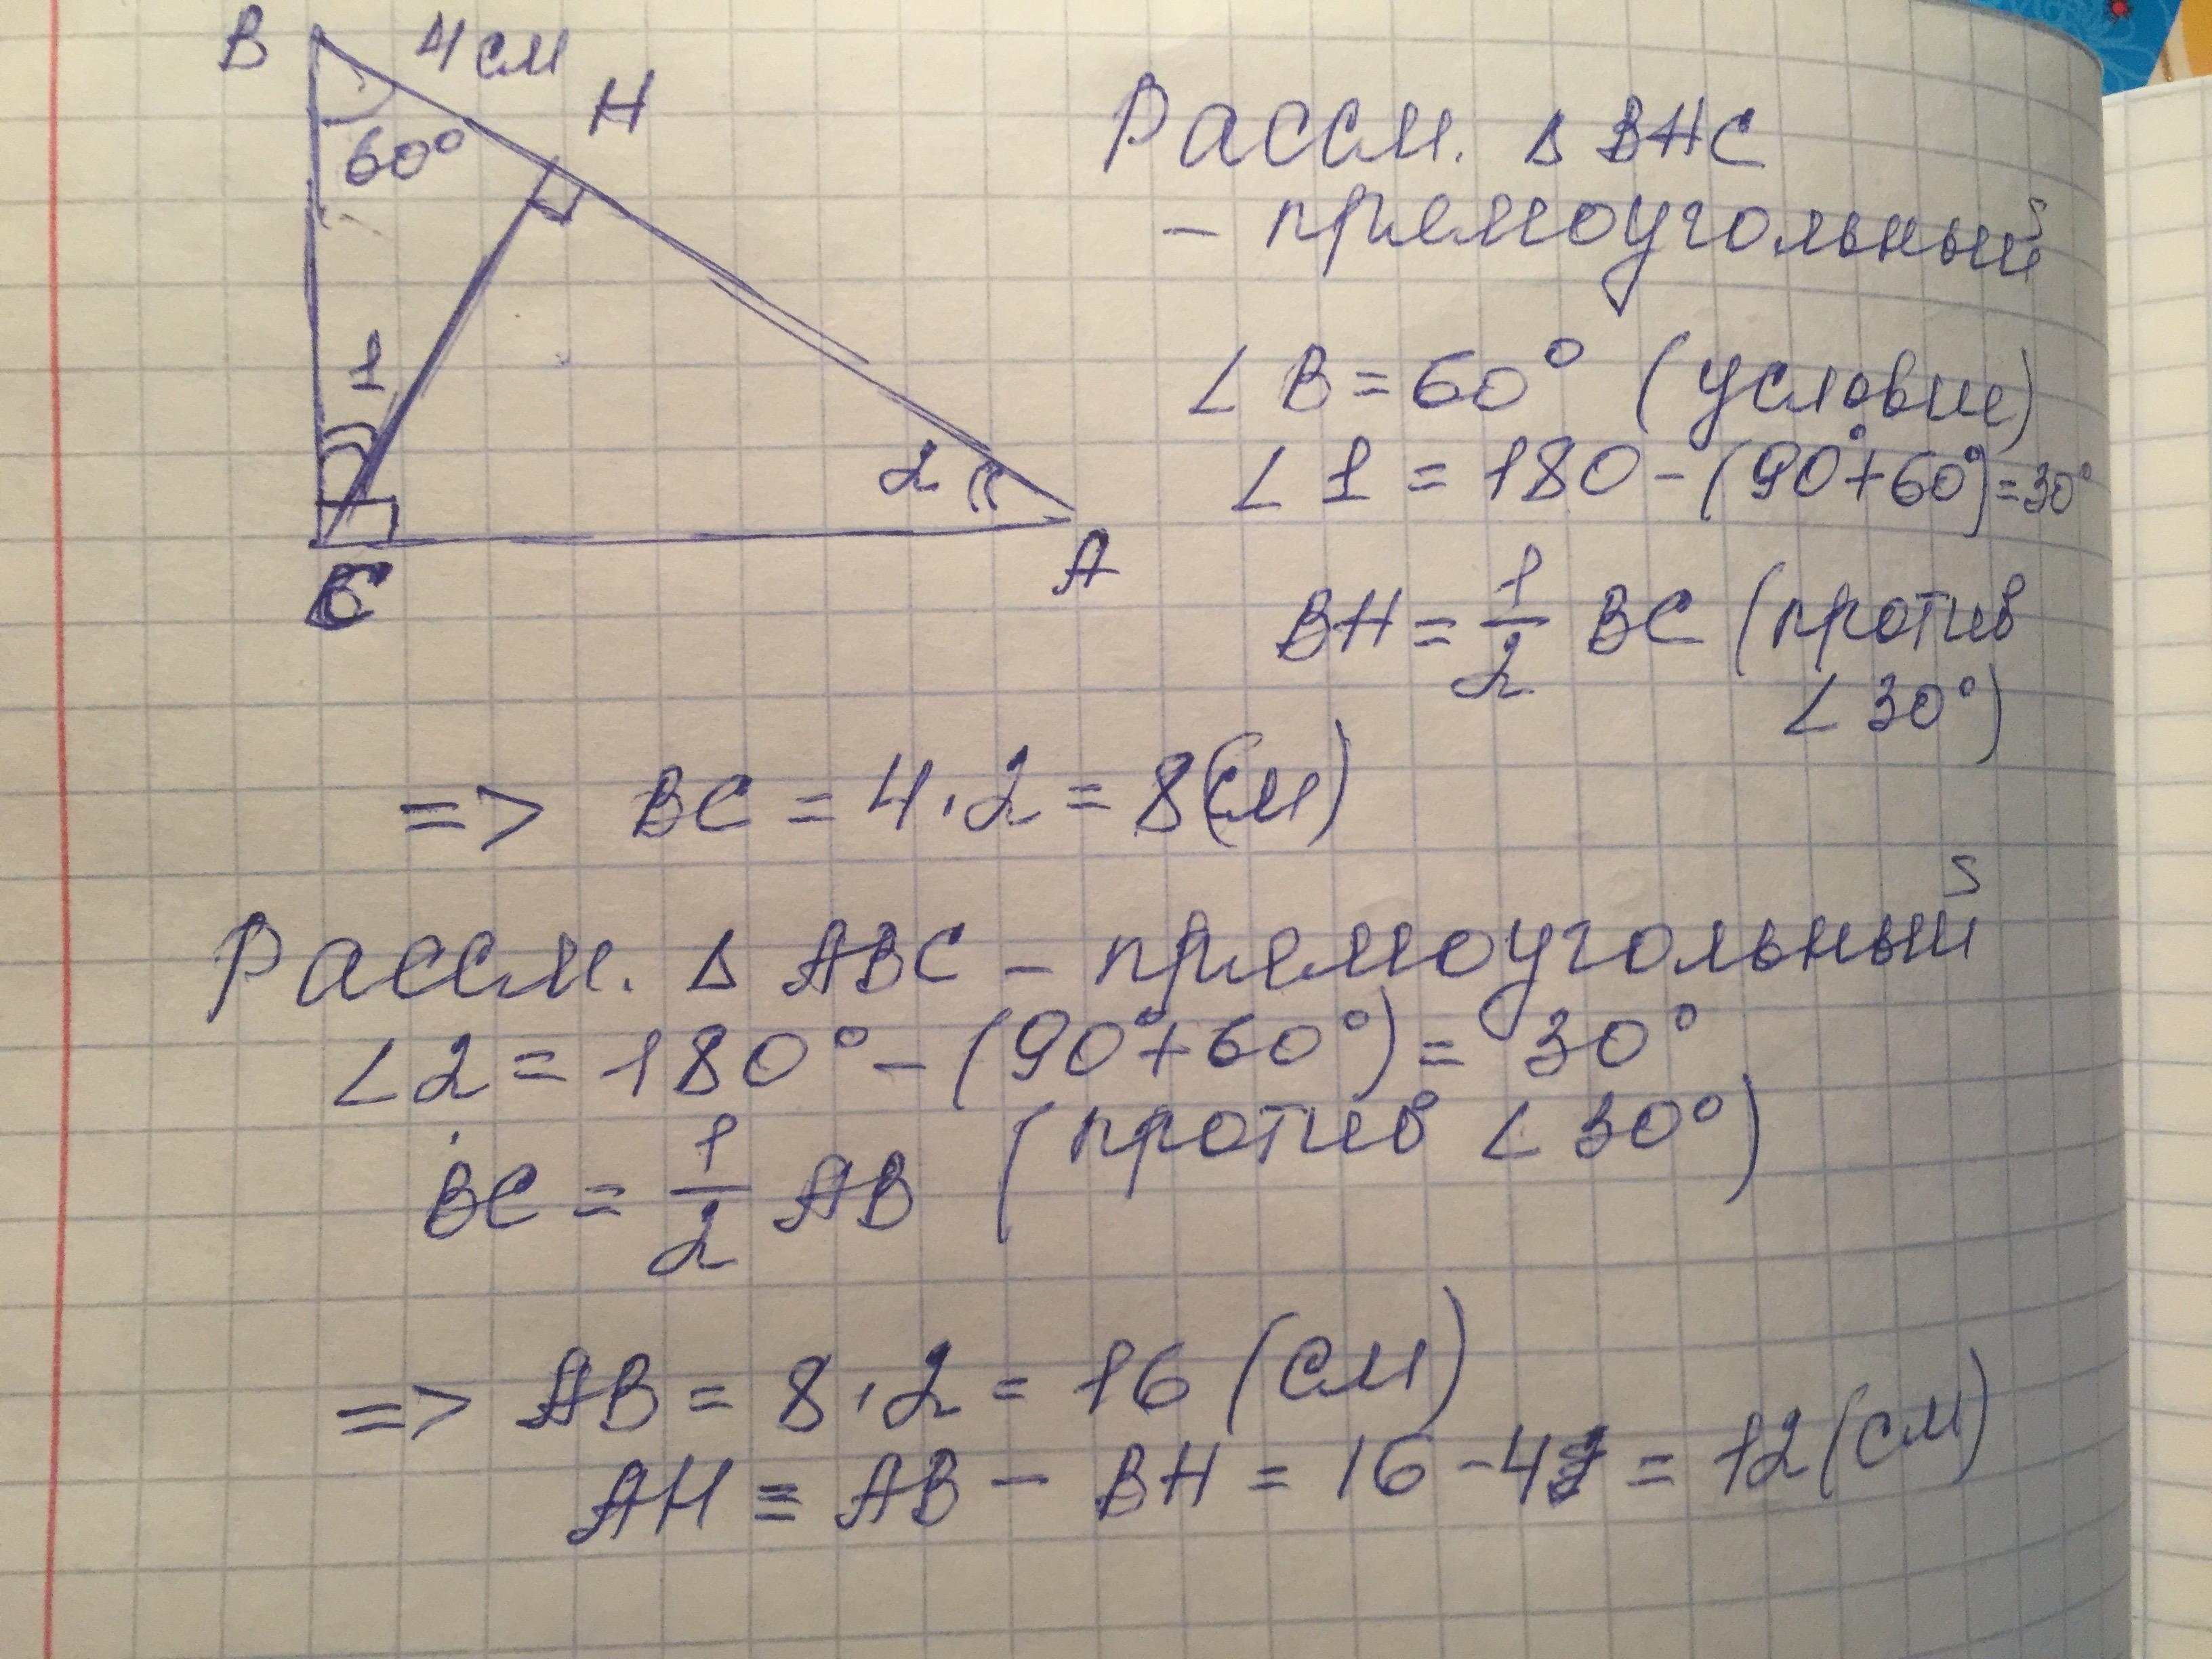 B 4 см H
60°
1
2
C A
Рассм. Δ BHC
- прямоугольный
∠ B = 60° (условие)
∠ 1 = 180 - (90°+60°) = 30°
BH = 1/2 BC (против
∠ 30°)
=> BC = 4·2 = 8(см)
Рассм. Δ ABC - прямоугольный
∠2 = 180° - (90°+60°) = 30°
BC = 1/2 AB (против ∠ 30°)
=> AB = 8·2 = 16 (см)
AH = AB - BH = 16 - 4 = 12 (см)